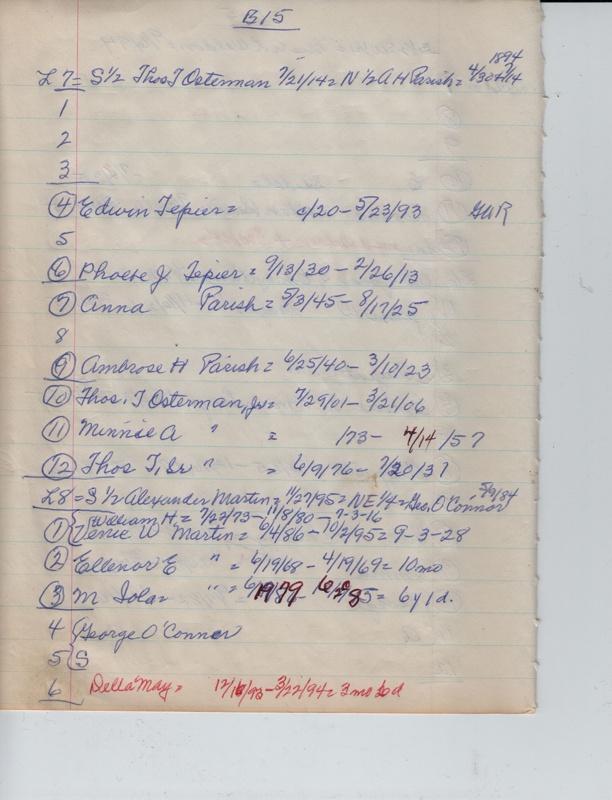 B15
1894
L 7 = S½ Thos T Osterman 7/21/14 = N ½ A H Parish =
1
2
3
4 Edwin Tepier = c/20 - 5/23/93 GAR
5
6 Phoebe J. Tepier = 9/13/30 - 2/26/13
7 Anna Parish = 5/3/45 - 8/17/25
8
9 Ambrose H Parish = 6/25/40 - 3/10/23
10 Thos. T Osterman, Jr = 7/29/01 - 3/21/06
11 Minnie A " = /73 - 4/14/57
12 Thos T, Sr " = 6/9/76 - 7/20/37
L8 = S ½ Alexander Martin = 11/27/95 = NE ¼ = Geo. O'Connor 5/9/84
William H = 7/22/73 - 11/8/80 - 7-3-16
1 Venie W Martin = 6/4/86 - 10/2/95 = 9-3-28
2 Ellenor E " = 6/19/68 - 4/19/69 = 10 mo
3 M Iola = " = 6y 1d.
4 George O'Connor
5 S
6 Della May = 12/16/93 - 3/22/94 = 3 mo 6 d